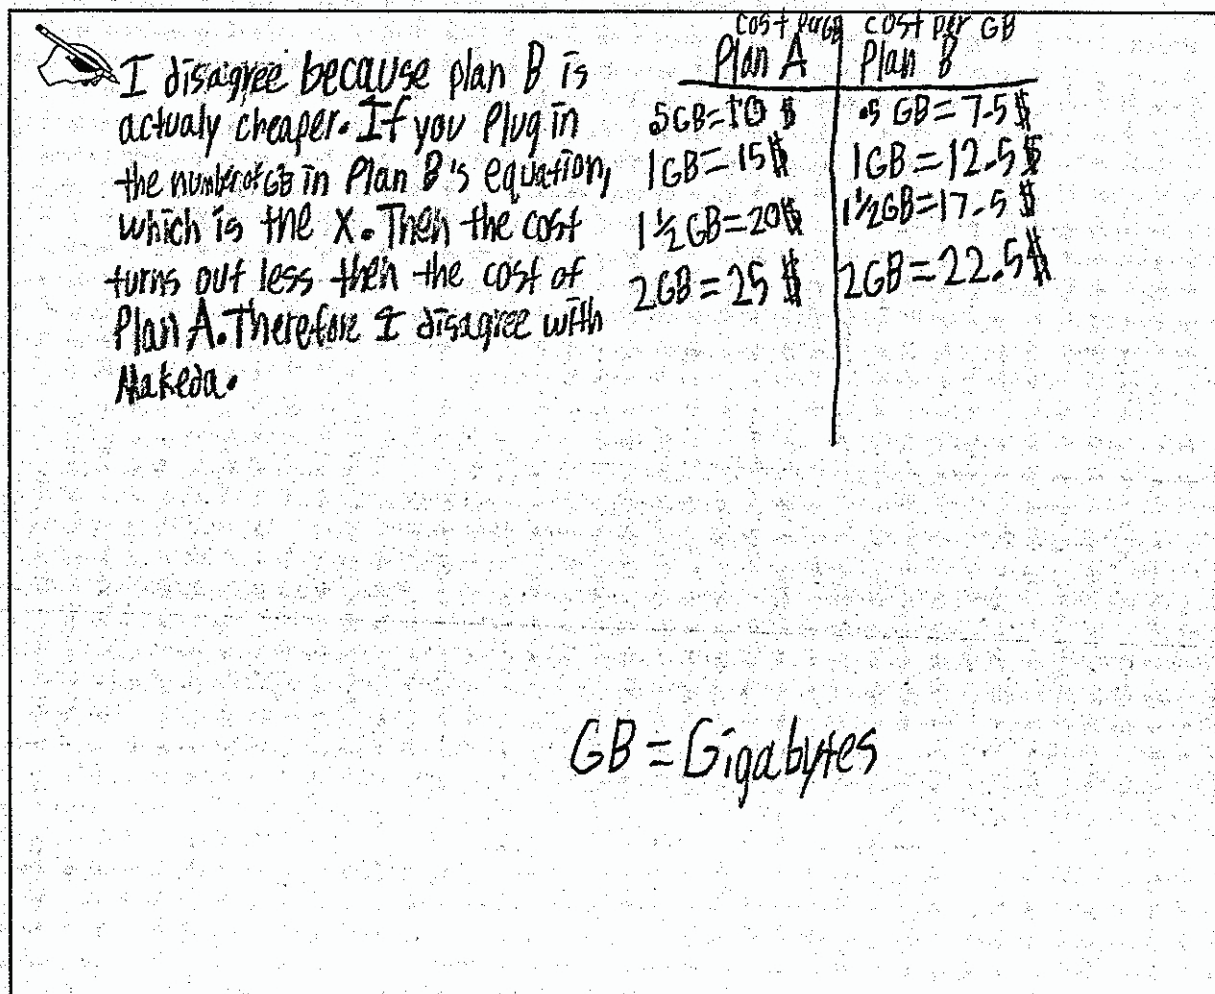 I disagree because plan B is
actualy cheaper. If you Plug in
the number of GB in Plan B's equation,
which is the X. Then the cost
turns out less then the cost of
Plan A. Therefore I disagree with
Makeda.
cost per GB
Plan A
.5GB=10 $
1GB=15$
1 ½ GB=20$
2GB=25 $
cost per GB
Plan B
.5 GB=7.5$
1GB=12.5$
1 ½GB=17.5 $
2GB=22.5$
GB = Gigabytes